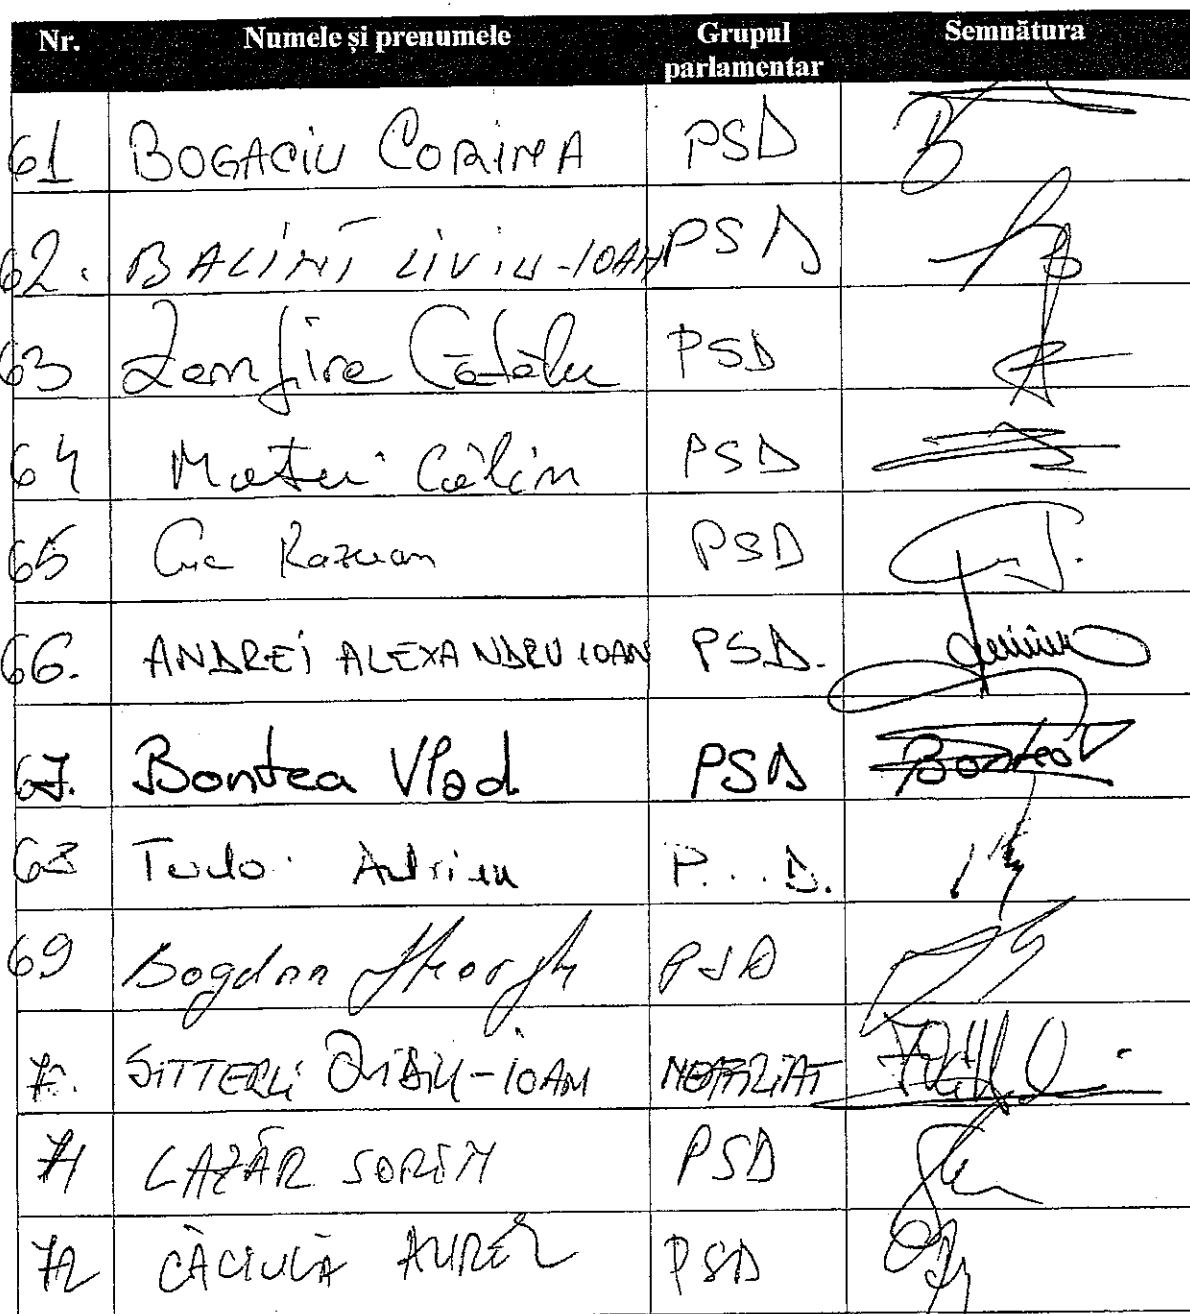 Nr. Numele și prenumele Grupul parlamentar Semnătura
61 BOGACIU CORINA PSD
62. BALINT LIVIU-IOAN PSD
63 Zamfira Cătălin PSD
64 Matei Călin PSD
65 Cuc Razvan PSD
66. ANDREI ALEXANDRU IOAN PSD.
67. Bontea Vlad PSD Bontea
68 Tudo Adrian P...D.
69 Bogdan Gheorghe PSD
70. SITTERLI OVIDIU-IOAN NEAFILIAT
71 LAZĂR SORIN PSD
72 CĂCIULĂ AUREL PSD